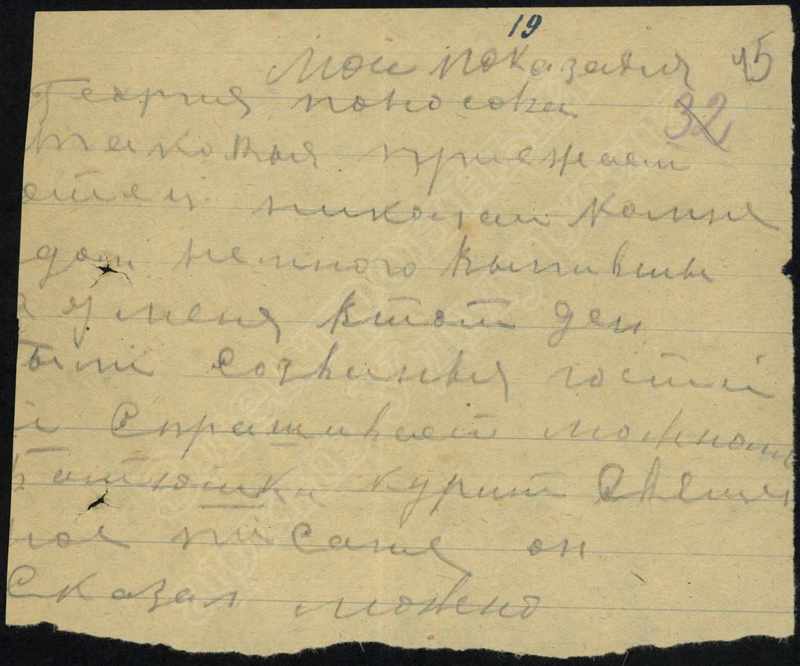 19
Мои показания 45
Георгия поносова 32
таковыя приежает
отец николай комне
дом немного выпивши
а уменя втот ден
были созваныя гостии
и Спрашивает можноли
Батюшки курит Священ
ное писание он
Сказал можно